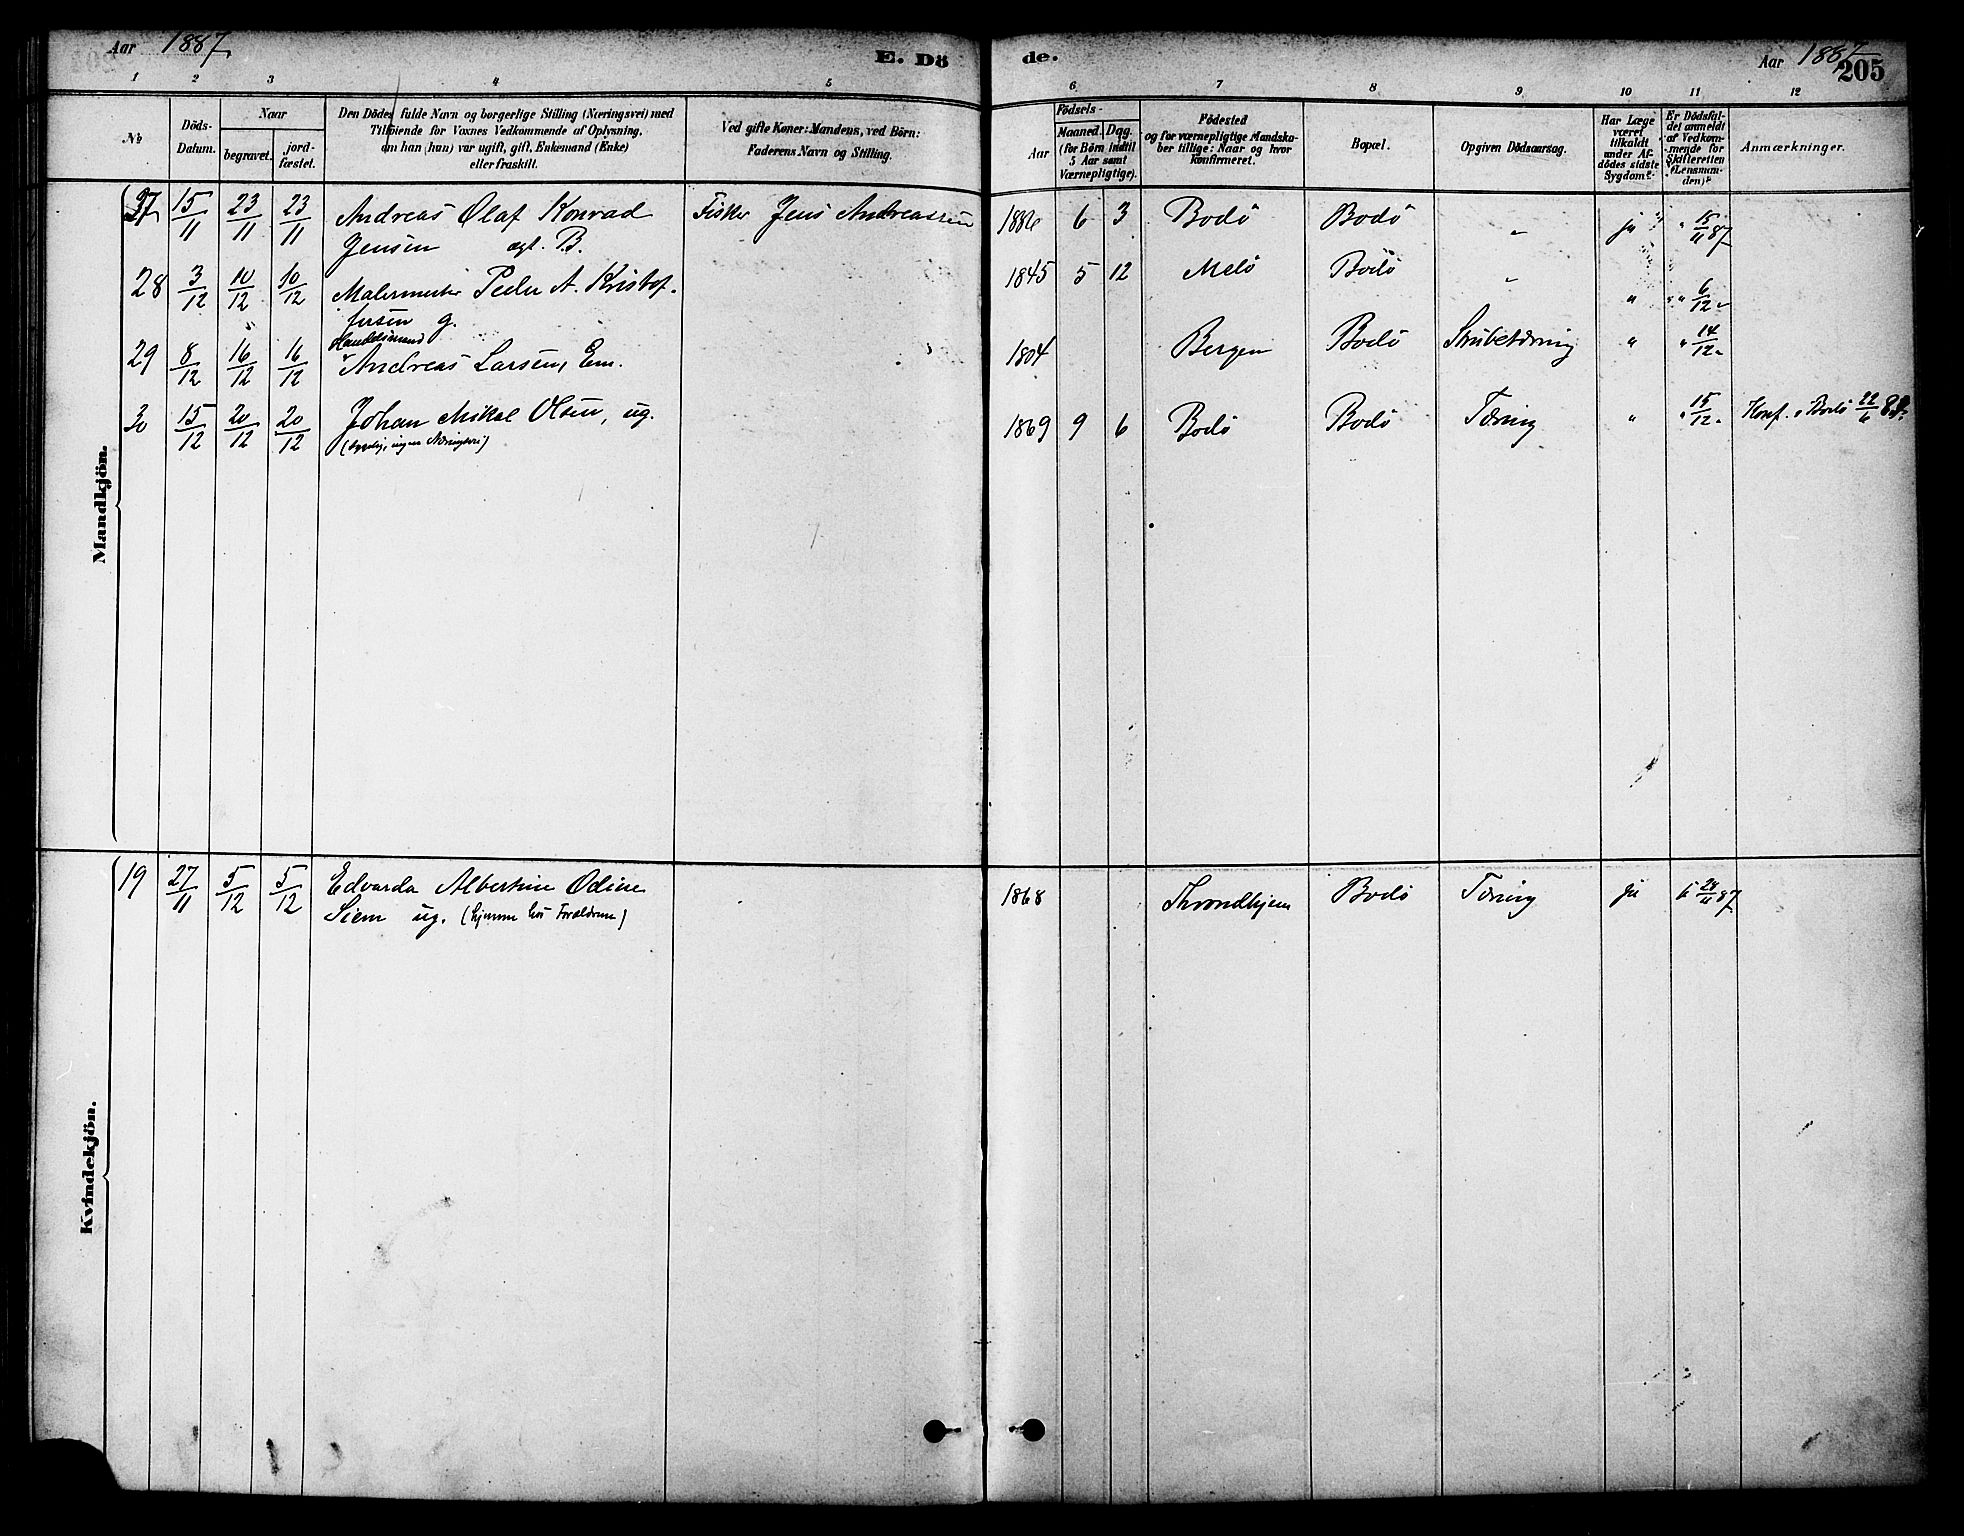 Aar 1887.
E. Döde.
Aar 1887
205
1 2 3 4 5 6 7 8 9 10 11 12
No
Döds-Datum.
Naar
begravet.
jord-fæstet.
Den Dödes fulde Navn og borgerlige Stilling (Næringsvei) med
Tilföiende for Voxnes Vedkommende af Oplysning,
om han (hun) var ugift, gift, Enkemand (Enke)
eller fraskilt.
Ved gifte Koner: Mandens, ved Börn:
Faderens Navn og Stilling.
Födsels-
Aar
Maaned.
Dag.
(for Börn indtil
5 Aar samt
Værnepligtige).
Födested
og for værnepligtige Mandska-
ber tillige: Naar og hvor
konfirmeret.
Bopæl.
Opgiven Dödsaarsag.
Har Læge
været
tilkaldt
under Af-
dödes sidste
Sygdom?
Er Dödsfal-
det anmeldt
af Vedkom-
mende for
Skifteretten
(Lensman-
den)?
Anmærkninger.
Mandkjön.
27 15/11 23/11 23/11 Andreas Olaf Konrad Fisker Jens Andreassen 1886 6 3 Bodö Bodö " ja " 15/11 87
Jensen ægt. B.
28 3/12 10/12 10/12 Malermester Peder A. Kristof- 1845 5 12 Melö Bodö " " " 6/12
fersen g.
Handelsmand
29 8/12 16/12 16/12 Andreas Larsen, Em. 1804 Bergen Bodö Strubetæring " " 14/12
30 15/12 20/12 20/12 Johan Mikal Olsen, ug. 1869 9 6 Bodö Bodö Tæring " " 15/12 Konf. i Bodö 22/6
(sygelig, ingen Næringsvei)
Kvindekjön.
19 27/11 5/12 5/12 Edvarda Albertine Odine 1868 Throndhjem Bodö Tæring ja 28/11 87
Siem ug. (hjemme hos Forældrene)